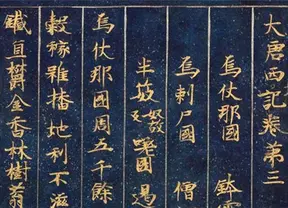 大唐西記卷第三
烏仗那國 鉢
烏剌尸國 僧
半笯嗟國 曷
烏仗那國周五千餘
穀稼雖播地利不滋
鐵宜欝金香林樹蓊